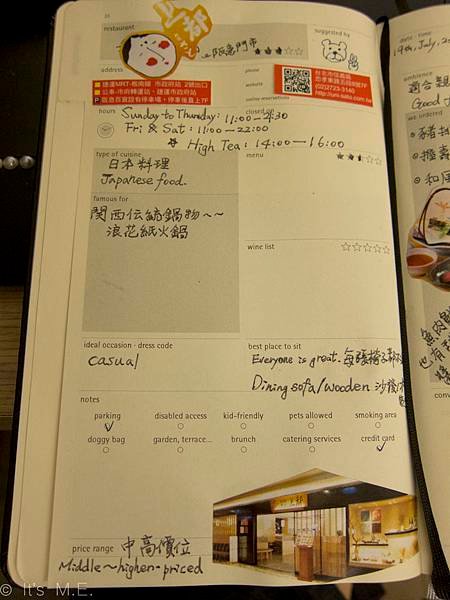 restaurant
suggested by
阪急門市
address
phone
website
online reservations
捷運MRT-板南線 市政府站 2號出口
公車-市府轉運站、捷運市政府站
P 阪急百貨設有停車場，停車後直上7F
台北市信義區
忠孝東路五段8號7F
(02)2723-3140
http://uni-sato.com.tw
hours
closed on
Sunday to Thursday: 11:00-21:30
Fri & Sat: 11:00-22:00
☆ High Tea: 14:00-16:00
type of cuisine
menu
日本料理
Japanese food.
famous for
関西伝統鍋物~~
浪花紙火鍋
wine list
ideal occasion · dress code
best place to sit
casual
Everyone is great.
Dining sofa/wooden
notes
parking
disabled access
kid-friendly
pets allowed
smoking area
doggy bag
garden, terrace...
brunch
catering services
credit card
price range
中高價位
Middle~higher-priced
date · time
19th, July, 20
ambience
適合
Good
we ordered
© It's M.E.